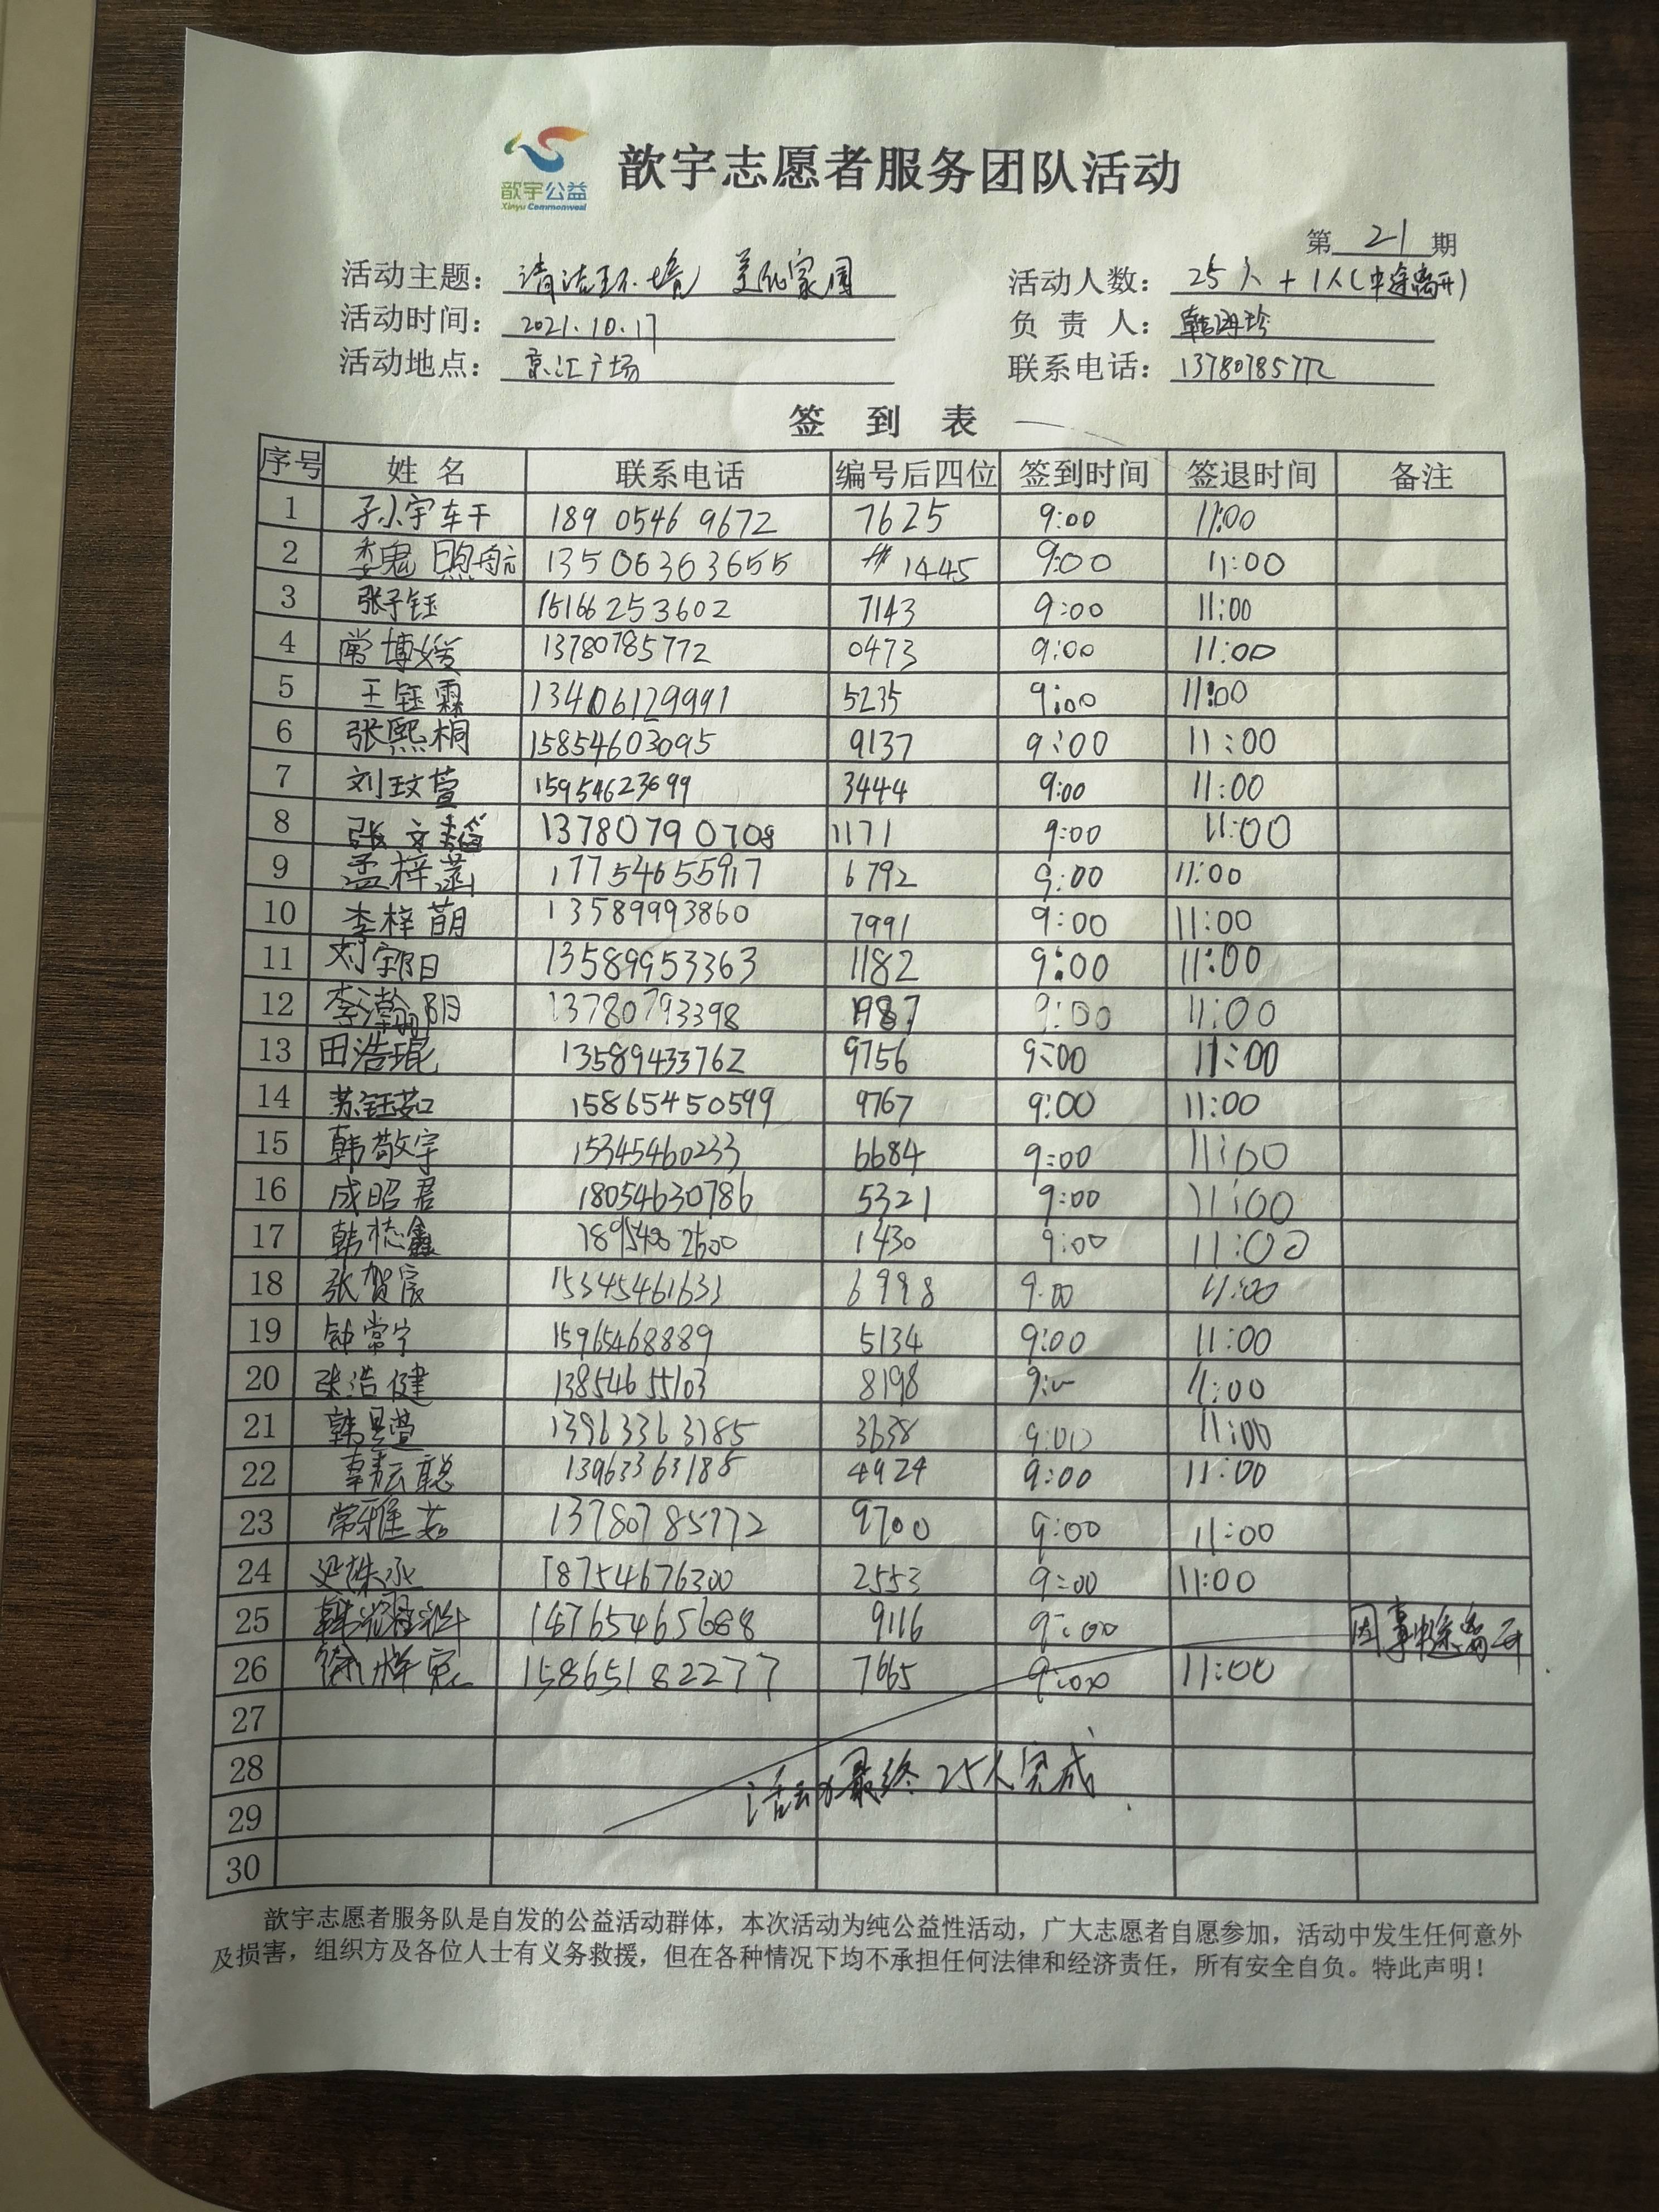 歆宇公益
Xinyu Commonweal
歆宇志愿者服务团队活动
第 21 期
活动主题：清洁环境 美化家园 活动人数：25人+1人(中途离开)
活动时间：2021.10.17 负责人：韩海玲
活动地点：京汇广场 联系电话：13780785772
签到表
序号 姓名 联系电话 编号后四位 签到时间 签退时间 备注
1 189 0546 9672 7625 9:00 11:00
2 13506363655 1445 9:00 11:00
3 张子钰 15166253602 7143 9:00 11:00
4 常博媛 13780785772 0473 9:00 11:00
5 王钰霖 13406129991 5235 9:00 11:00
6 张熙桐 15854603095 9137 9:00 11:00
7 刘玟萱 15954623699 3444 9:00 11:00
8 张文韬 13780790708 1171 9:00 11:00
9 孟梓涵 17754655917 6792 9:00 11:00
10 李梓萌 13589993860 7991 9:00 11:00
11 13589953363 1182 9:00 11:00
12 13780793398 1987 9:00 11:00
13 田浩琨 13589433762 9756 9:00 11:00
14 苏钰茹 15865450599 9767 9:00 11:00
15 韩敬宇 15345460233 6684 9:00 11:00
16 成昭君 18054630786 5321 9:00 11:00
17 韩梽鑫 1430 9:00 11:00
18 张贺宸 15345461631 6998 9:00 11:00
19 钟常宁 15965468889 5134 9:00 11:00
20 张浩健 13854655103 8198 11:00
21 韩昱萱 13963363185 3638 9:00 11:00
22 13963363185 4924 9:00 11:00
23 常雅茹 13780785772 9700 9:00 11:00
24 18754676300 2553 9:00 11:00
25 9116 9:00 因事中途离开
26 15865182277 7665 9:00 11:00
27
28 活动最终25人完成.
29
30
歆宇志愿者服务队是自发的公益活动群体，本次活动为纯公益性活动，广大志愿者自愿参加，活动中发生任何意外
及损害，组织方及各位人士有义务救援，但在各种情况下均不承担任何法律和经济责任，所有安全自负。特此声明！